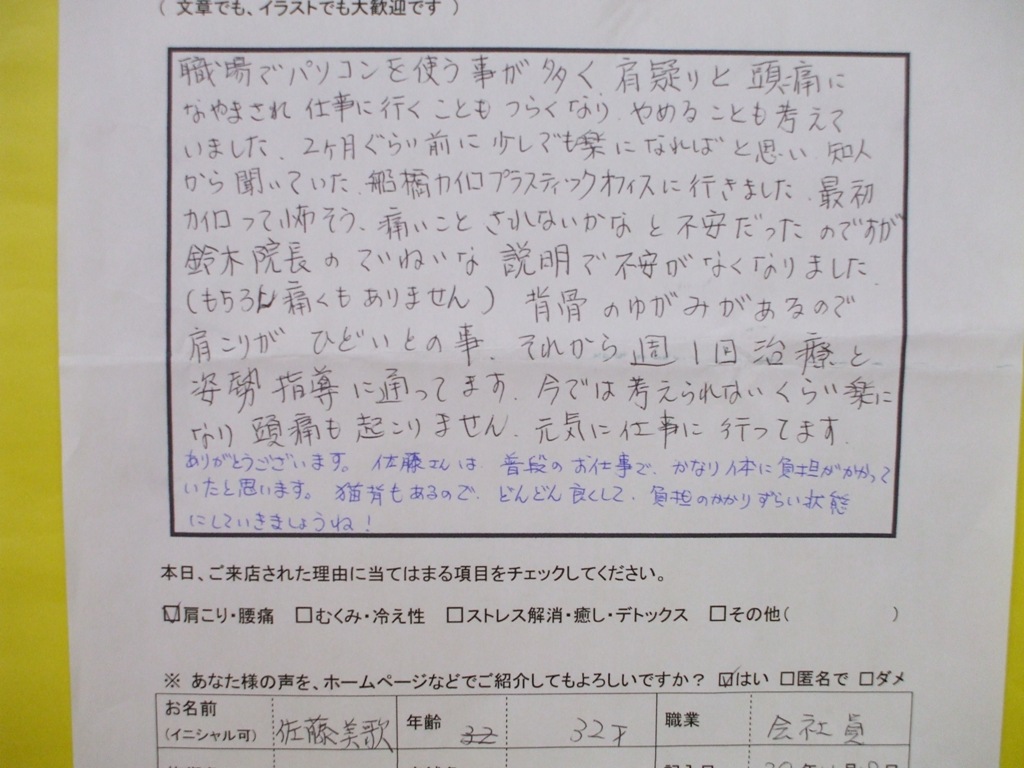 ( 文章でも、イラストでも大歓迎です )
職場でパソコンを使う事が多く、肩疑りと頭痛に
なやまされ仕事に行くこともつらくなり、やめることも考えて
いました。2ヶ月ぐらい前に少しでも楽になればと思い、知人
から聞いていた、船橋カイロプラスティックオフィスに行きました。最初
カイロって怖そう、痛いことされないかなと不安だったのですが
鈴木院長のていねいな説明で不安がなくなりました
(もちろん痛くもありません) 背骨のゆがみがあるので
肩こりがひどいとの事、それから週1回治療と
姿勢指導に通ってます。今では考えられないくらい楽に
なり頭痛も起こりません。元気に仕事に行ってます。
ありがとうございます。佐藤さんは、普段のお仕事で、かなり体に負担がかかって
いたと思います。猫背もあるので、どんどん良くして、負担のかかりずらい状態
にしていきましょうね!
本日、ご来店された理由に当てはまる項目をチェックしてください。
☑肩こり・腰痛 □むくみ・冷え性 □ストレス解消・癒し・デトックス □その他( )
※ あなた様の声を、ホームページなどでご紹介してもよろしいですか? ☑はい □匿名で □ダメ
お名前 (イニシャル可) 佐藤美歌 年齢 32 32才 職業 会社員